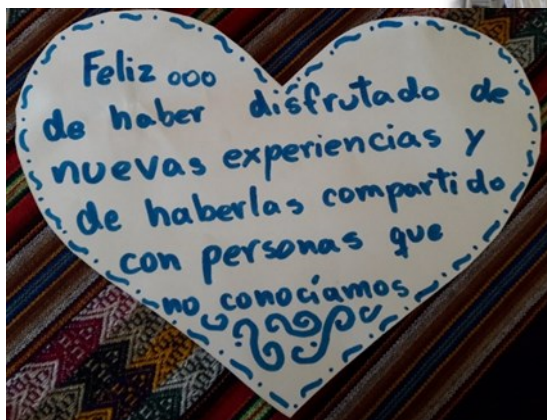 Feliz ooo
de haber disfrutado de
nuevas experiencias y
de haberlas compartido
con personas que
no conocíamos